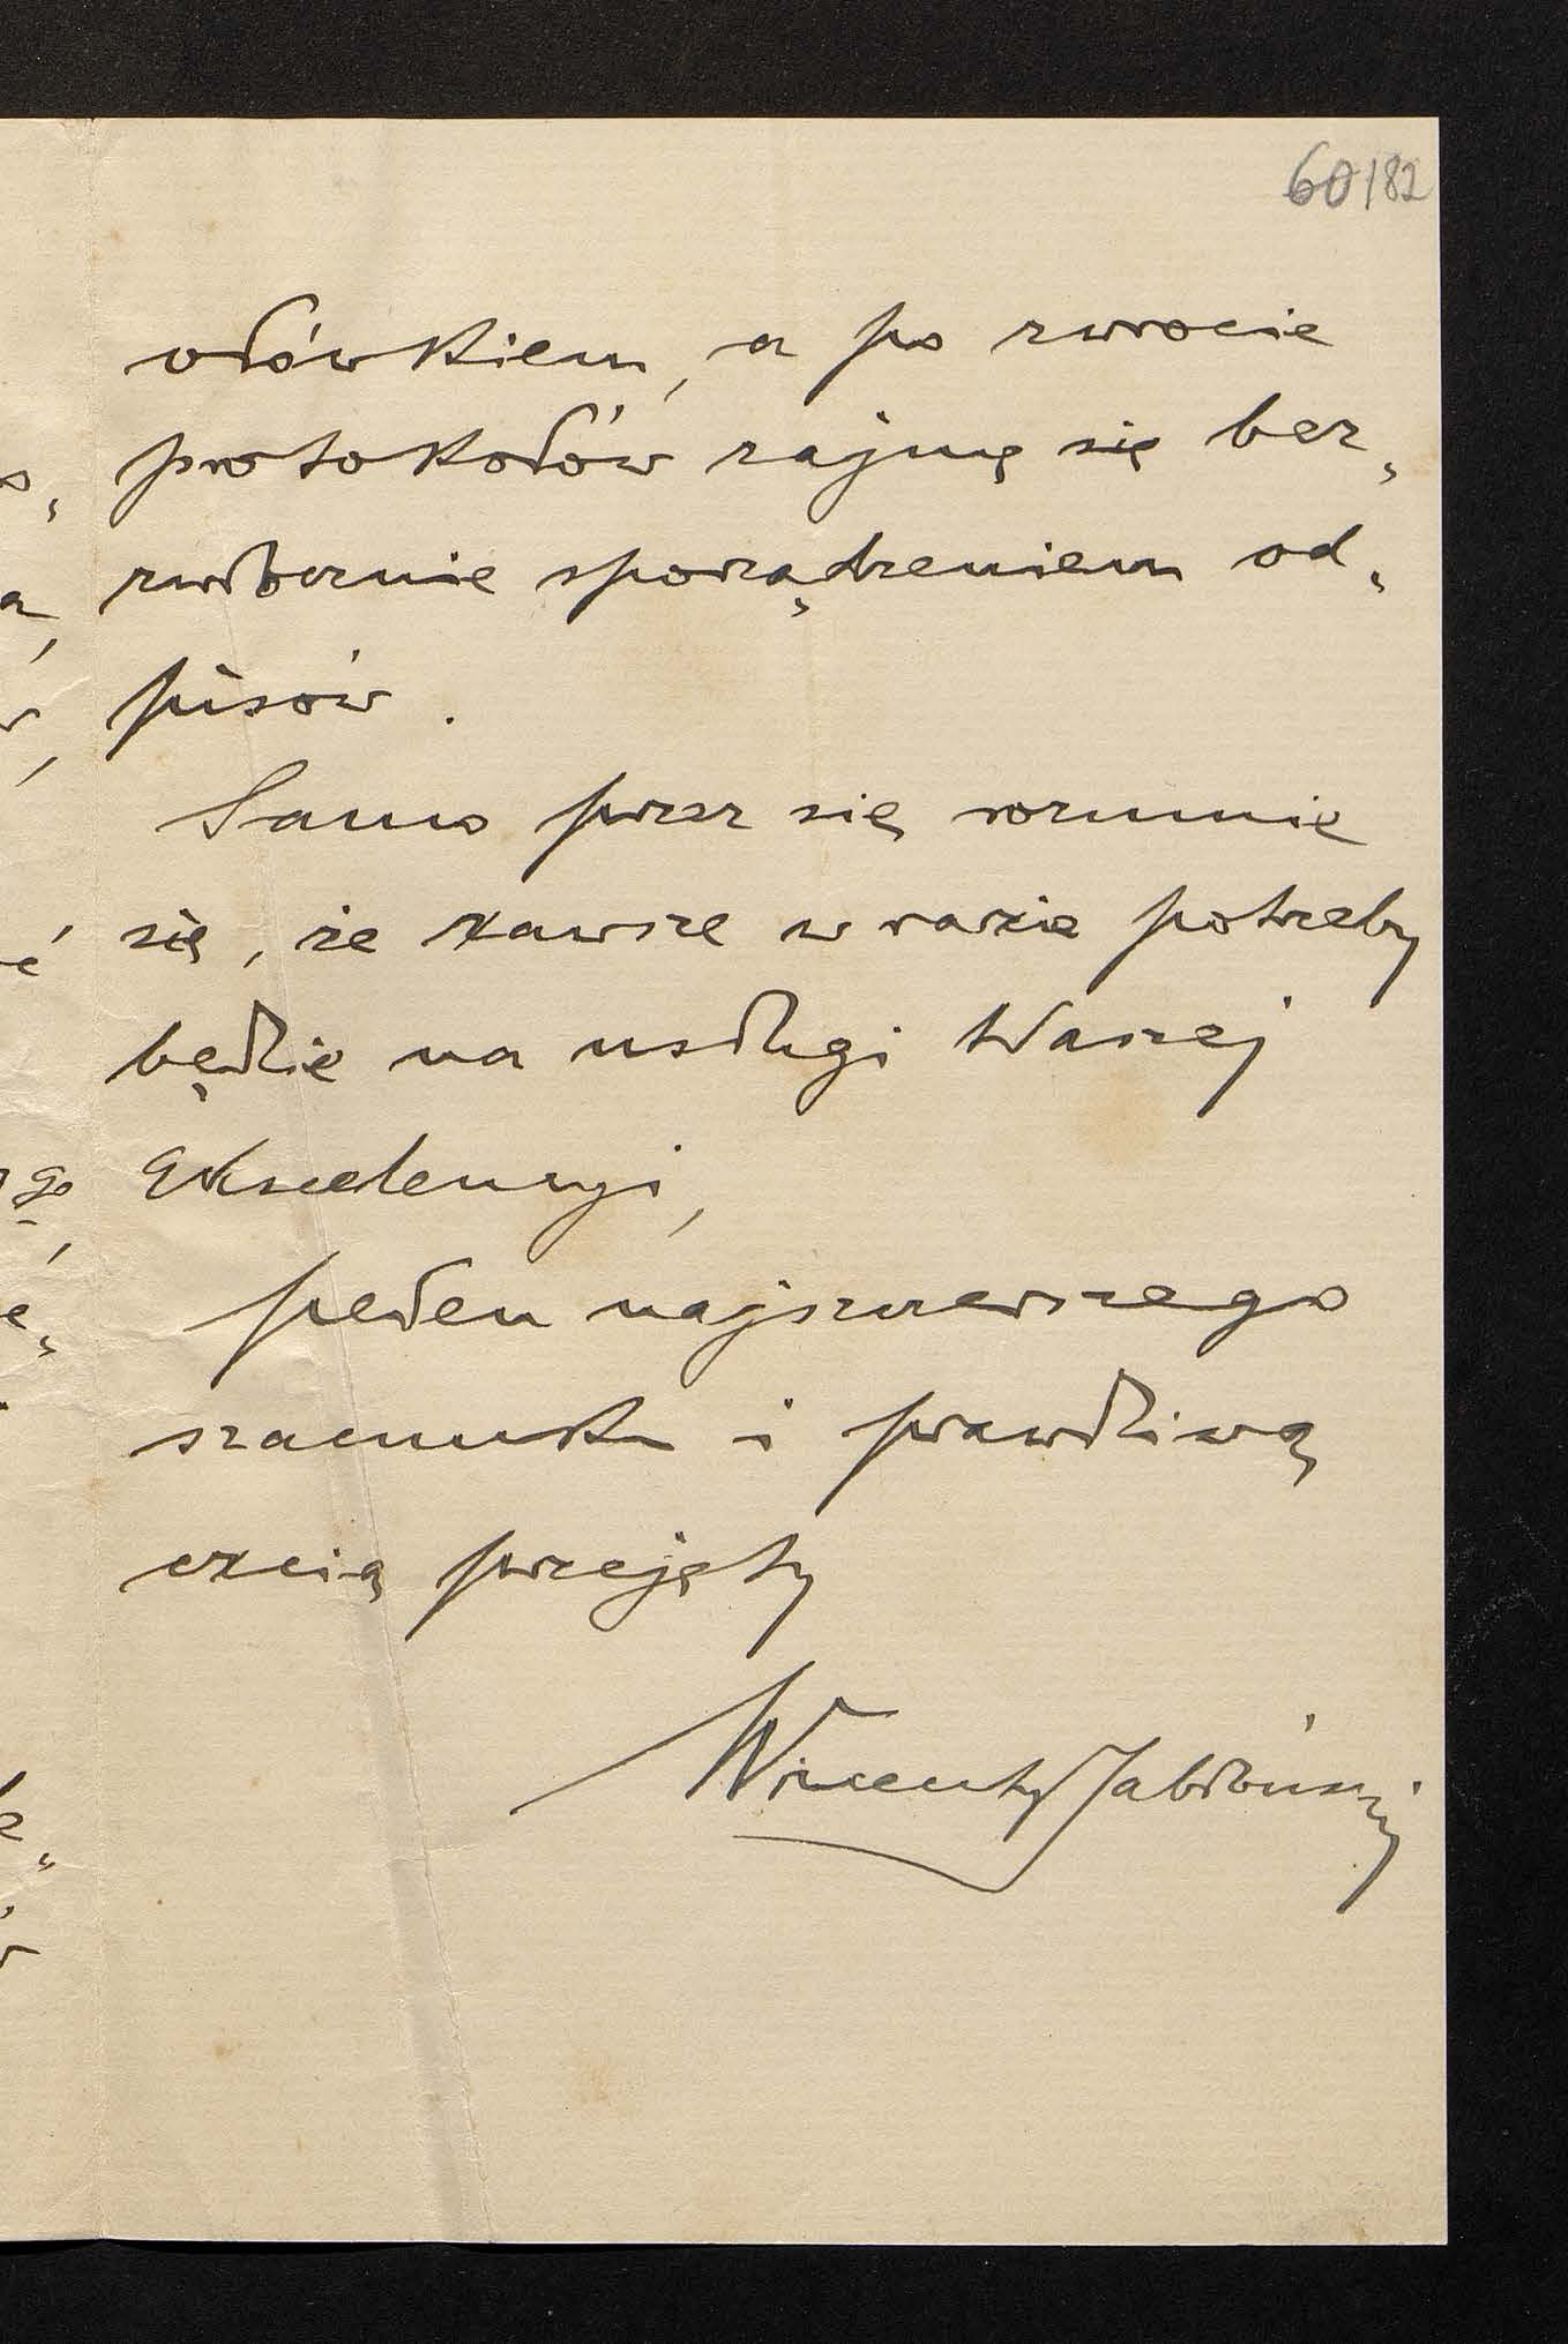 60/82
ołówkiem, a po zwrocie
protokołów zajmę się bez„
zwłocznie sporządzeniem od„
pisów.
Samo przez się rozumie
się, że zawsze w razie potrzeby
będzie na usługi Waszej
Ekscelencyi,
pełen najszczerszego
szacunku i prawdziwą
czcią przejęty
Wincenty Jabłoński